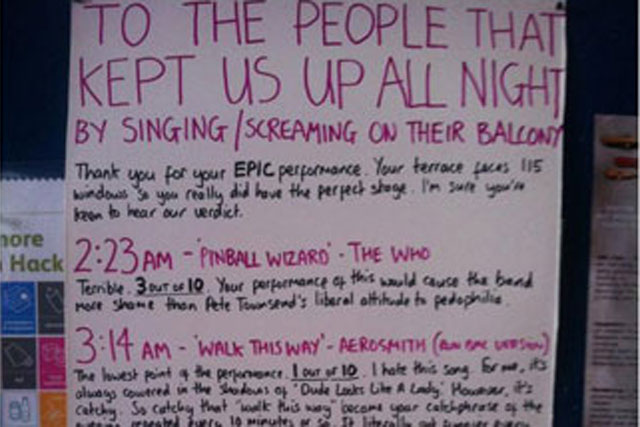 TO THE PEOPLE THAT
KEPT US UP ALL NIGHT
BY SINGING/SCREAMING ON THEIR BALCONY
Thank you for your EPIC performance. Your terrace faces 115
windows so you really did have the perfect stage. I'm sure you're
keen to hear our verdict.
2:23 AM - 'PINBALL WIZARD' - THE WHO
Terrible. 3 OUT OF 10. Your performance of this would cause the band
more shame than Pete Townsend's liberal attitude to pedophilia.
3:14 AM - 'WALK THIS WAY' - AEROSMITH (RUN DMC VERSION)
The lowest point of the performance. 1 OUT OF 10. I hate this song. For me, it's
always covered in the shadows of 'Dude Looks Like A Lady'. However, it's
catchy. So catchy that "walk this way" became your catchphrase of the
evening repeated every 10 minutes or so. It literally got
more
Hack